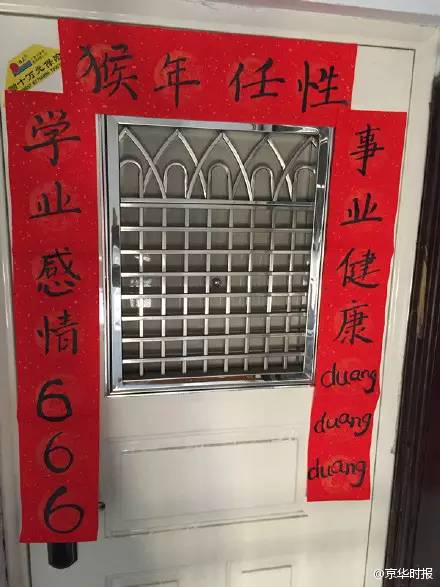 猴年任性
学业感情666
事业健康duangduangduang
@京华时报